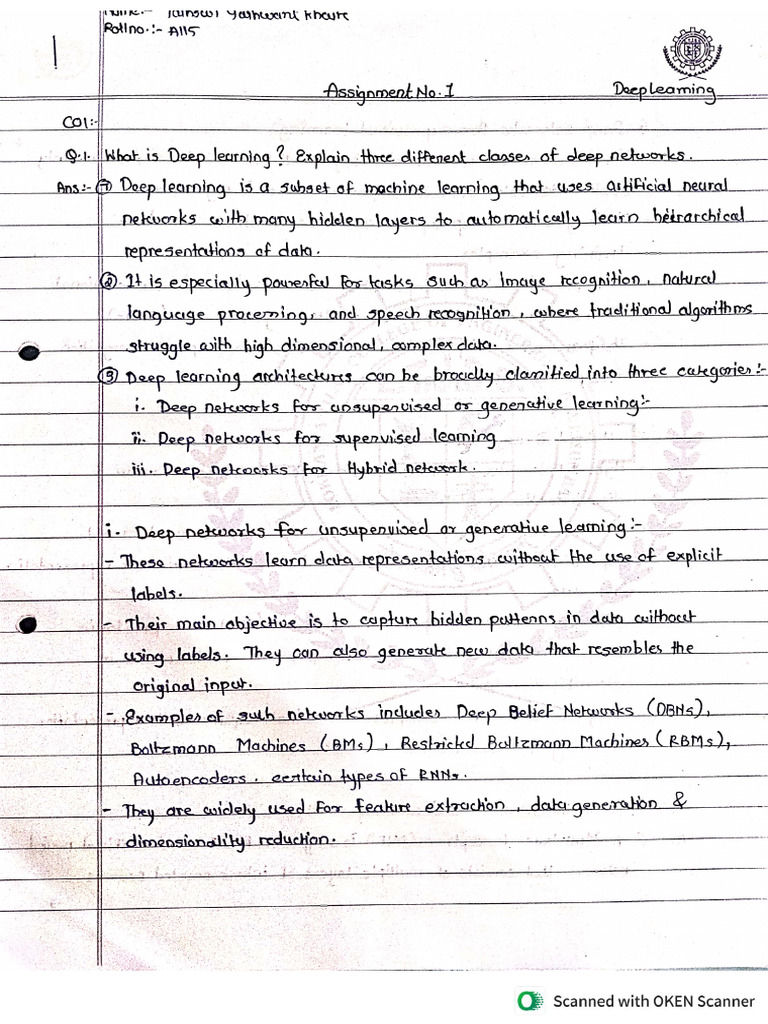 Yashwant Khaire
Roll no.:- A115
1
Assignment No. 1 Deep Learning
CO1:-
Q.1. What is Deep learning? Explain three different classes of deep networks.
Ans:- ① Deep learning is a subset of machine learning that uses artificial neural
networks with many hidden layers to automatically learn heirarchical
representations of data.
② It is especially powerful for tasks such as Image recognition, natural
language processing, and speech recognition, where traditional algorithms
struggle with high dimensional, complex data.
③ Deep learning architectures can be broadly classified into three categories:-
i. Deep networks for unsupervised or generative learning:-
ii. Deep networks for supervised learning
iii. Deep networks for Hybrid network.
i. Deep networks for unsupervised or generative learning:-
- These networks learn data representations without the use of explicit
labels.
- Their main objective is to capture hidden patterns in data without
using labels. They can also generate new data that resembles the
original input.
- Examples of such networks includes Deep Belief Networks (DBNs),
Boltzmann Machines (BMs), Restrickd Boltzmann Machines (RBMs),
Autoencoders, certain types of RNNs.
- They are widely used for feature extraction, data generation &
dimensionality reduction.
Scanned with OKEN Scanner